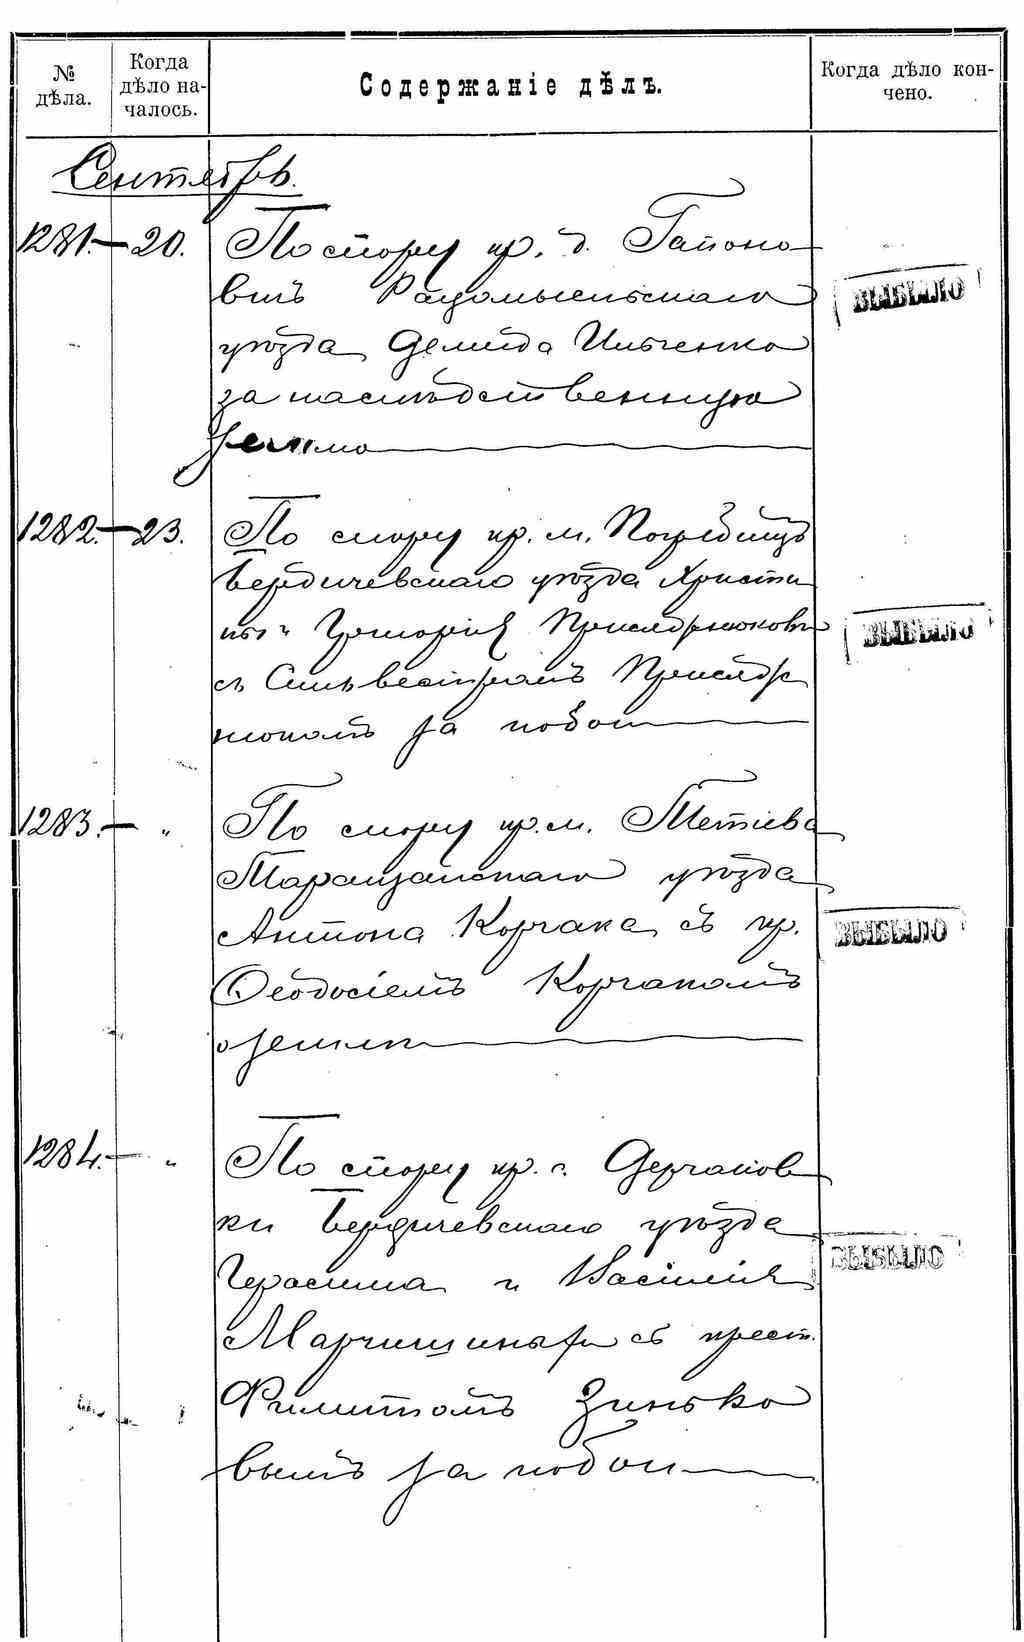 № дѣла.
Когда дѣло началось.
Содержаніе дѣлъ.
Когда дѣло кончено.
Сентябрь.
1281.— 20. По спору кр. д. Гапоно
вичъ Радомысльскаго
уѣзда Демида Ильченка
за наслѣдственную
землю
ВЫБЫЛО
1282.— 23. По спору кр. м. Погребищъ
Бердичевскаго уѣзда Христи
ны и Григорія
съ Сильвестромъ
нюкомъ за побои
ВЫБЫЛО
1283.— " По спору кр. м. Тетіева
Таращанскаго уѣзда
Антона Корчака съ кр.
Ѳеодосіемъ Корчакомъ
о землѣ
ВЫБЫЛО
1284.— " По спору кр. с.
ки Бердичевскаго уѣзда
Герасима и Василія
съ крест.
Филиппомъ Зинько
вымъ за побои
ВЫБЫЛО